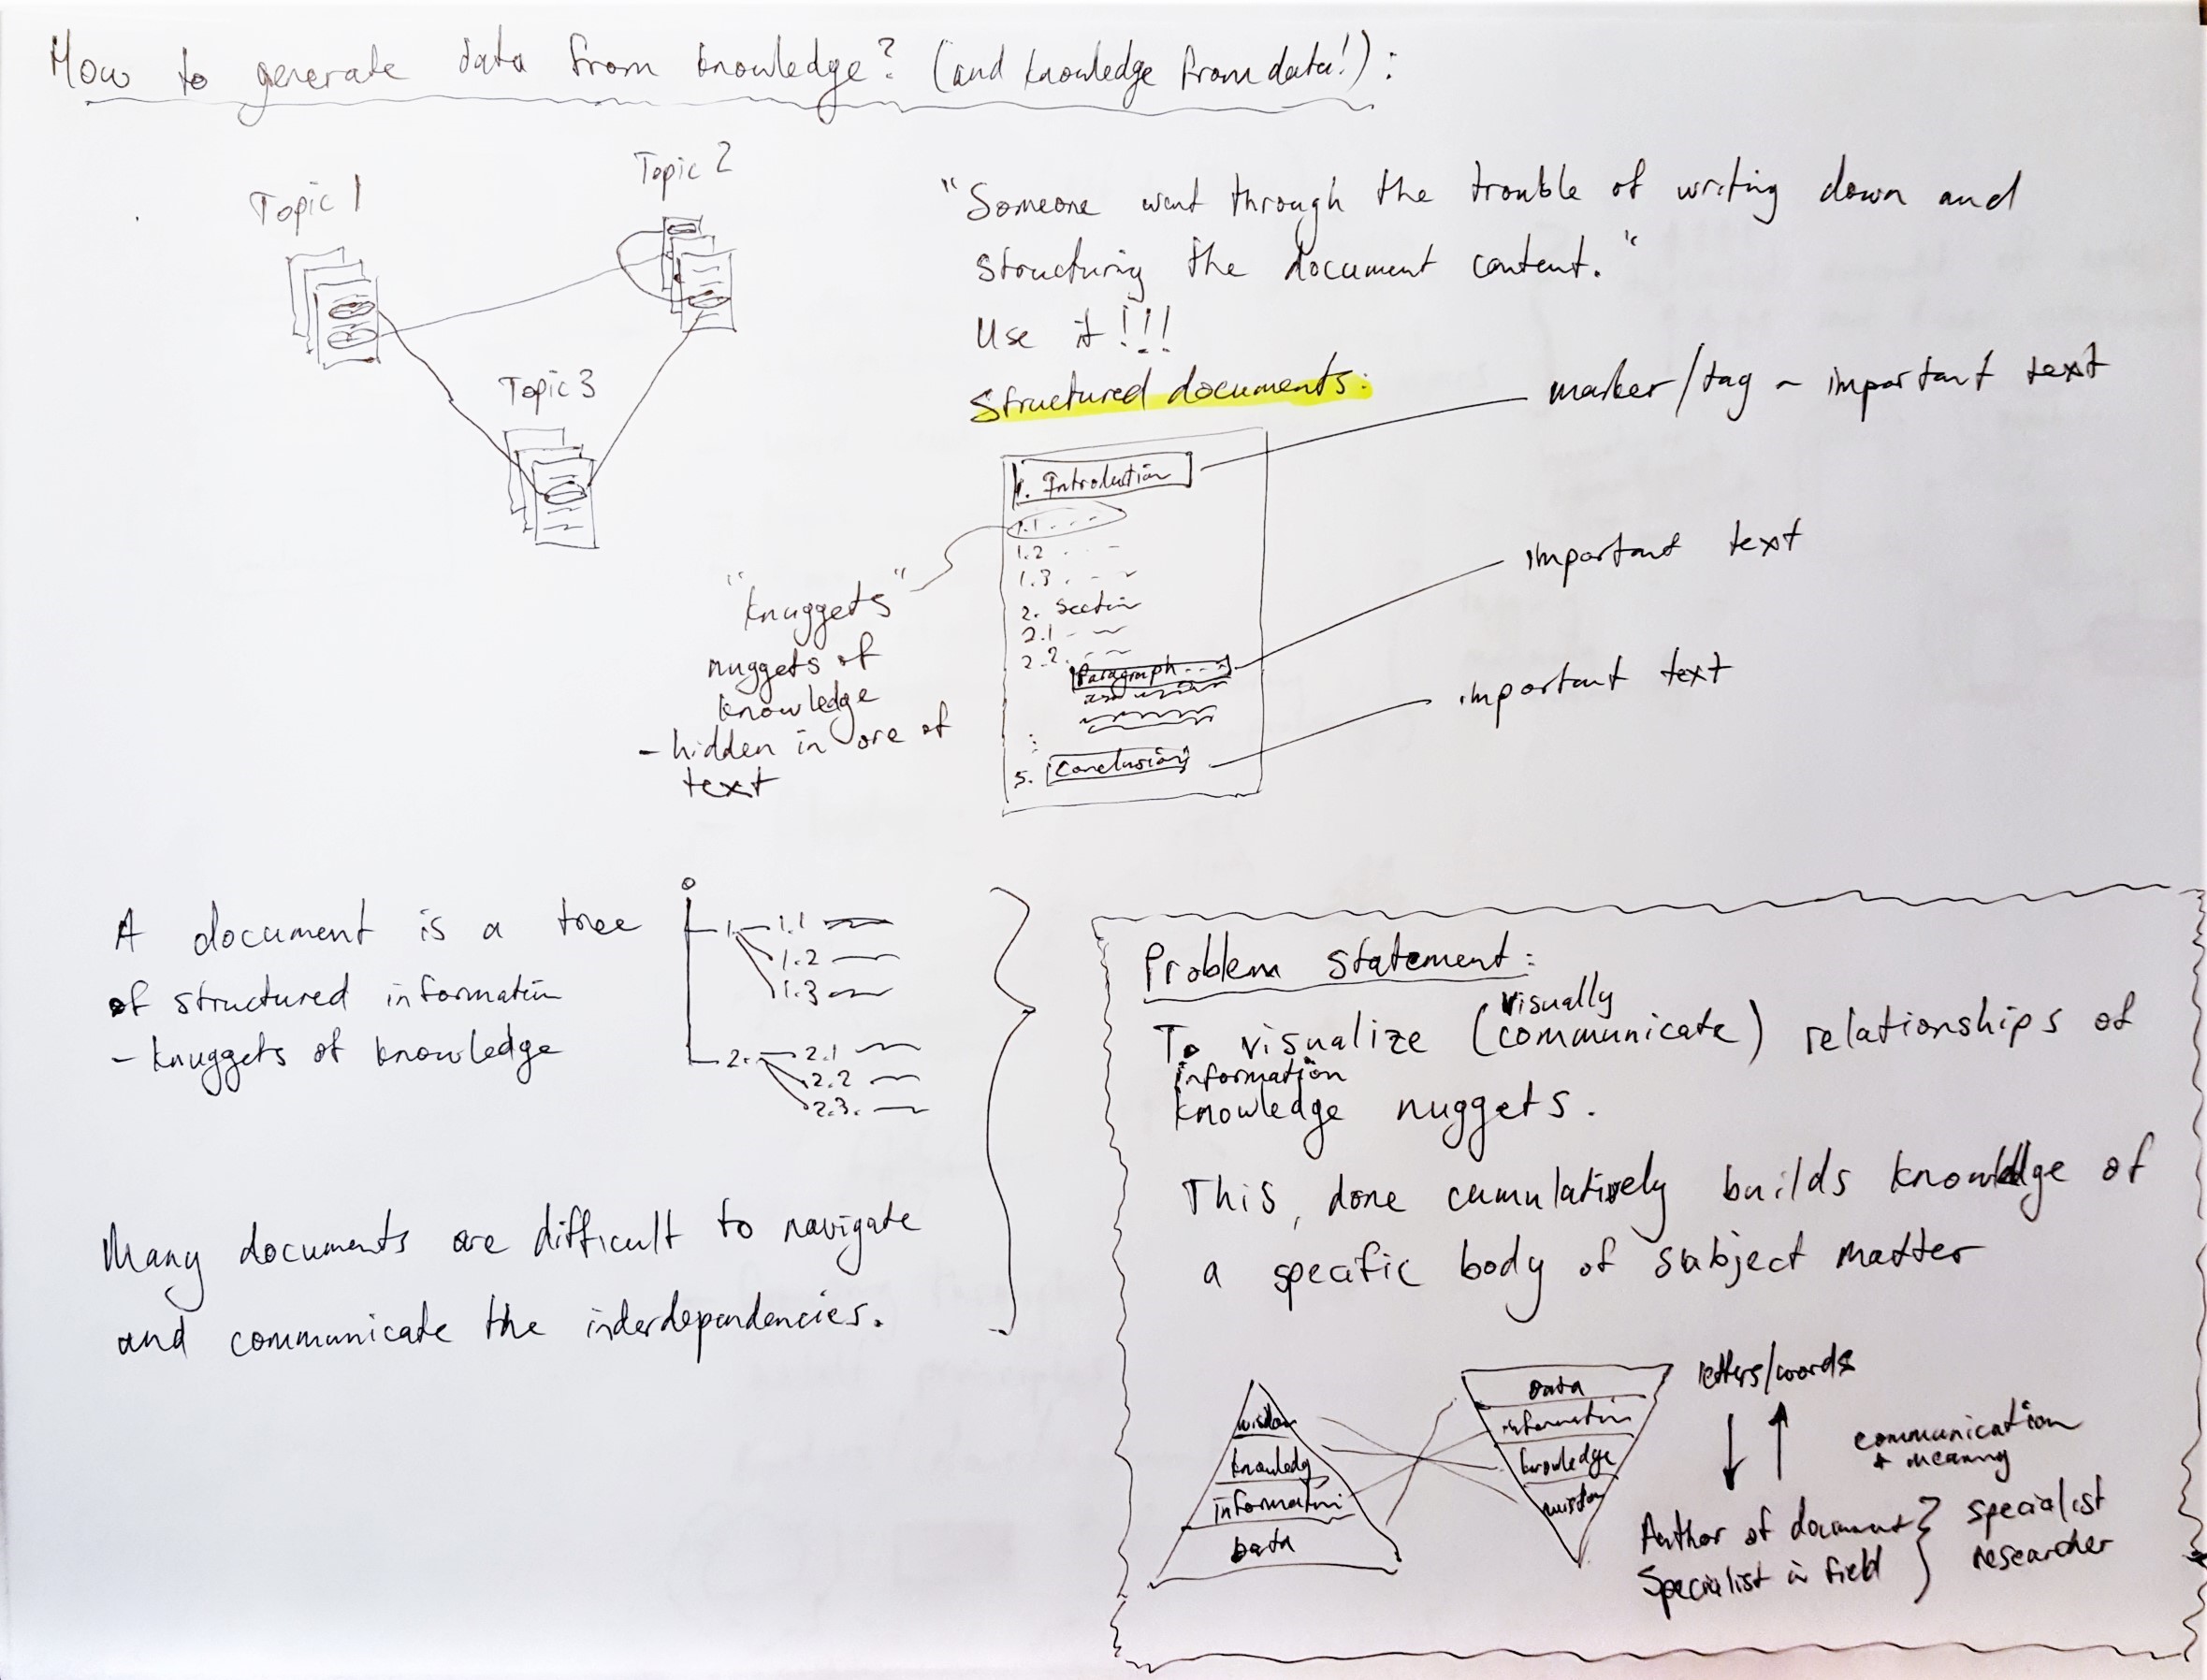 How to generate data from knowledge? (and knowledge from data!):
Topic 1
Topic 2
Topic 3
"Someone went through the trouble of writing down and
structuring the document content."
Use it!!!
Structured documents:
marker/tag ~ important text
1. Introduction
1.1 - - -
1.2 - - -
1.3. - ~
2. Section
2.1 - ~
2.2. - ~
Paragraph - - -
:
5. Conclusion
important text
important text
"knuggets"
nuggets of
knowledge
- hidden in ore of
text
A document is a tree
of structured information
- knuggets of knowledge
1.
1.1
1.2
1.3
2.
2.1
2.2
2.3.
Many documents are difficult to navigate
and communicate the interdependencies.
Problem statement:
visually
To visualize (communicate) relationships of
information
knowledge nuggets.
This, done cumulatively builds knowledge of
a specific body of subject matter
wisdom
knowledg
information
Data
Data
information
knowledge
wisdom
letters/words
communication
+ meaning
Author of document } specialist
Specialist in field researcher